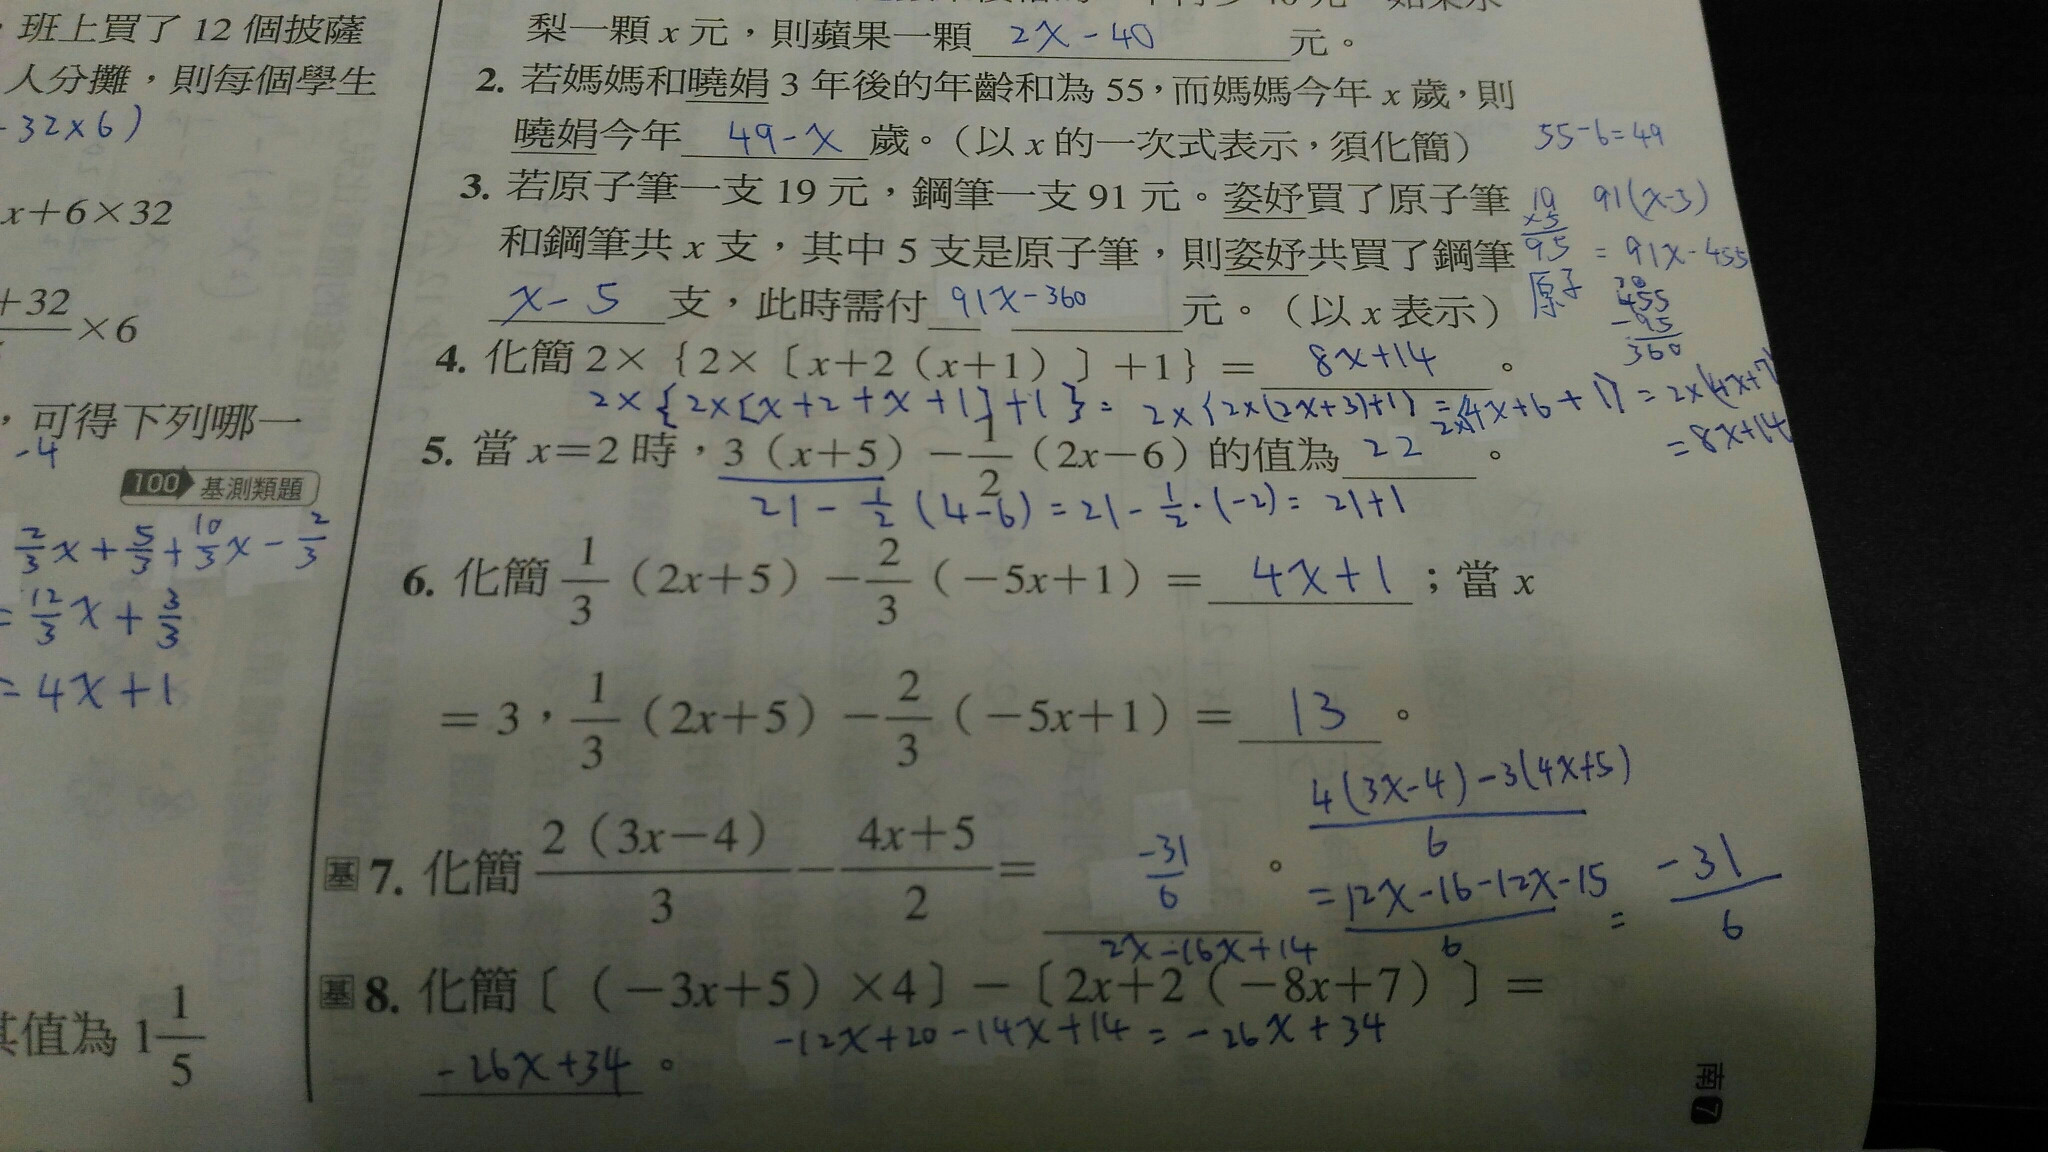 ，班上買了 12 個披薩
人分攤，則每個學生
32×6)
x＋6×32
+32 ×6
，可得下列哪一
-4
100 基測類題
2/3 x + 5/3 + 10/3 x - 2/3
= 12/3 x + 3/3
= 4x+1
其值為 1 1/5
梨一顆 x 元，則蘋果一顆 2x-40 元。
2. 若媽媽和曉娟 3 年後的年齡和為 55，而媽媽今年 x 歲，則
曉娟今年 49-x 歲。（以 x 的一次式表示，須化簡）
55-6=49
3. 若原子筆一支 19 元，鋼筆一支 91 元。姿妤買了原子筆
和鋼筆共 x 支，其中 5 支是原子筆，則姿妤共買了鋼筆
x-5 支，此時需付 91x-360 元。（以 x 表示）
19
×5
95
原子
91(x-3)
= 91x-455
455
-95
360
4. 化簡 2×｛2×〔x＋2（x＋1）〕＋1｝＝ 8x+14 。
2×{2×[x+2+x+1]+1}= 2×{2×(2x+3)+1} = 2×(4x+6+1) = 2×(4x+7)
= 8x+14
5. 當 x＝2 時，3（x＋5）－1/2（2x－6）的值為 22 。
21 - 1/2 (4-6) = 21 - 1/2·(-2) = 21+1
6. 化簡 1/3（2x＋5）－2/3（－5x＋1）＝ 4x+1 ；當 x
＝3，1/3（2x＋5）－2/3（－5x＋1）＝ 13 。
基 7. 化簡 2（3x－4）/3 － 4x＋5/2 ＝ -31/6 。
4(3x-4)-3(4x+5)/6
= 12x-16-12x-15/6 = -31/6
2x-16x+14
基 8. 化簡〔（－3x＋5）×4〕－〔2x＋2（－8x＋7）〕＝
-12x+20-14x+14 = -26x+34
-26x+34 。
南 7